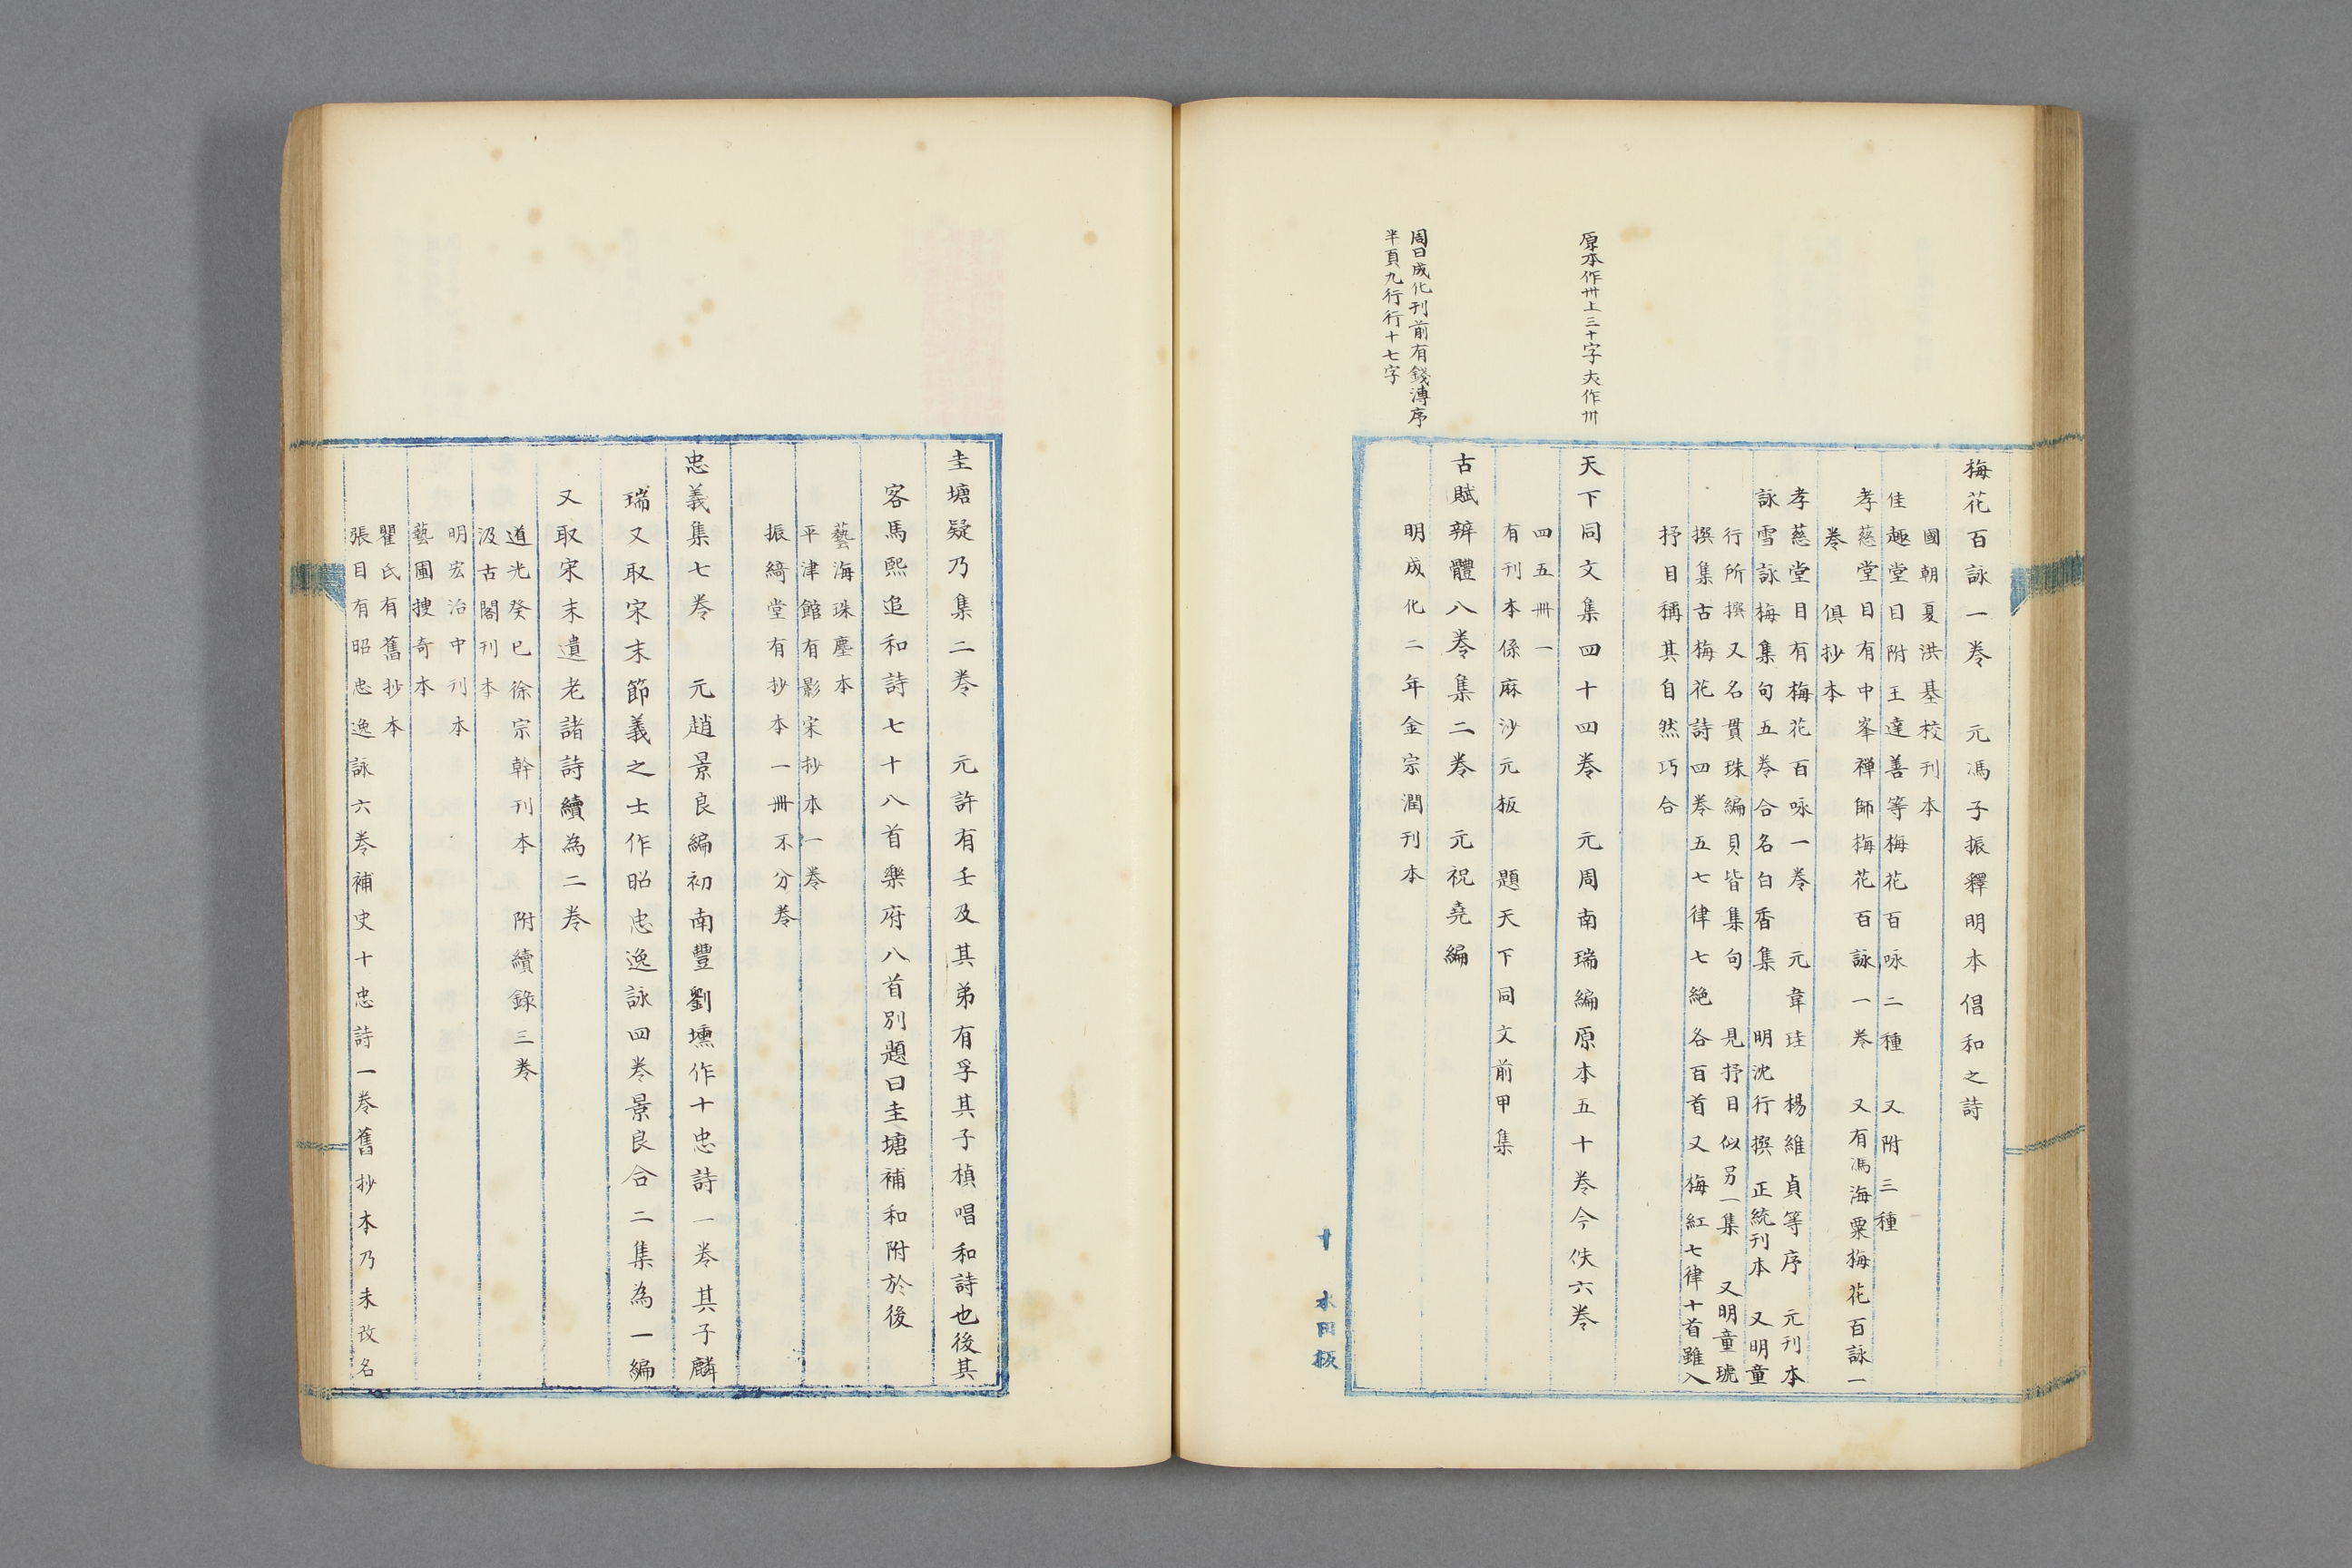 原本作卅上三十字夾作卅
周曰成化刊前有錢溥序
半頁九行行十七字
梅花百詠一卷　元馮子振釋明本倡和之詩
國朝夏洪基校刊本
佳趣堂目附王達善等梅花百咏二種　又附三種
孝慈堂目有中峯禪師梅花百詠一卷　又有馮海粟梅花百詠一
卷　俱抄本
孝慈堂目有梅花百咏一卷　元韋珪　楊維貞等序　元刊本
詠雪詠梅集句五卷合名白香集　明沈行撰　正統刊本　又明童
行所撰又名貫珠編貝皆集句　見抒目似另一集　又明童琥
撰集古梅花詩四卷五七律七絕各百首又梅紅七律十首雖入
抒目稱其自然巧合
天下同文集四十四卷　元周南瑞編原本五十卷今佚六卷
四五冊一
有刊本係麻沙元板　題天下同文前甲集
古賦辨體八卷集二卷　元祝堯編
明成化二年金宗潤刊本
十　水田板
圭塘疑乃集二卷　元許有壬及其弟有孚其子楨唱和詩也後其
客馬熙追和詩七十八首樂府八首別題曰圭塘補和附於後
藝海珠塵本
平津館有影宋抄本一卷
振綺堂有抄本一冊不分卷
忠義集七卷　元趙景良編初南豐劉壎作十忠詩一卷其子麟
瑞又取宋末節義之士作昭忠逸詠四卷景良合二集為一編
又取宋末遺老諸詩續為二卷
道光癸巳徐宗幹刊本　附續錄三卷
汲古閣刊本
明宏治中刊本
藝圃搜奇本
瞿氏有舊抄本
張目有昭忠逸詠六卷補史十忠詩一卷舊抄本乃未改名